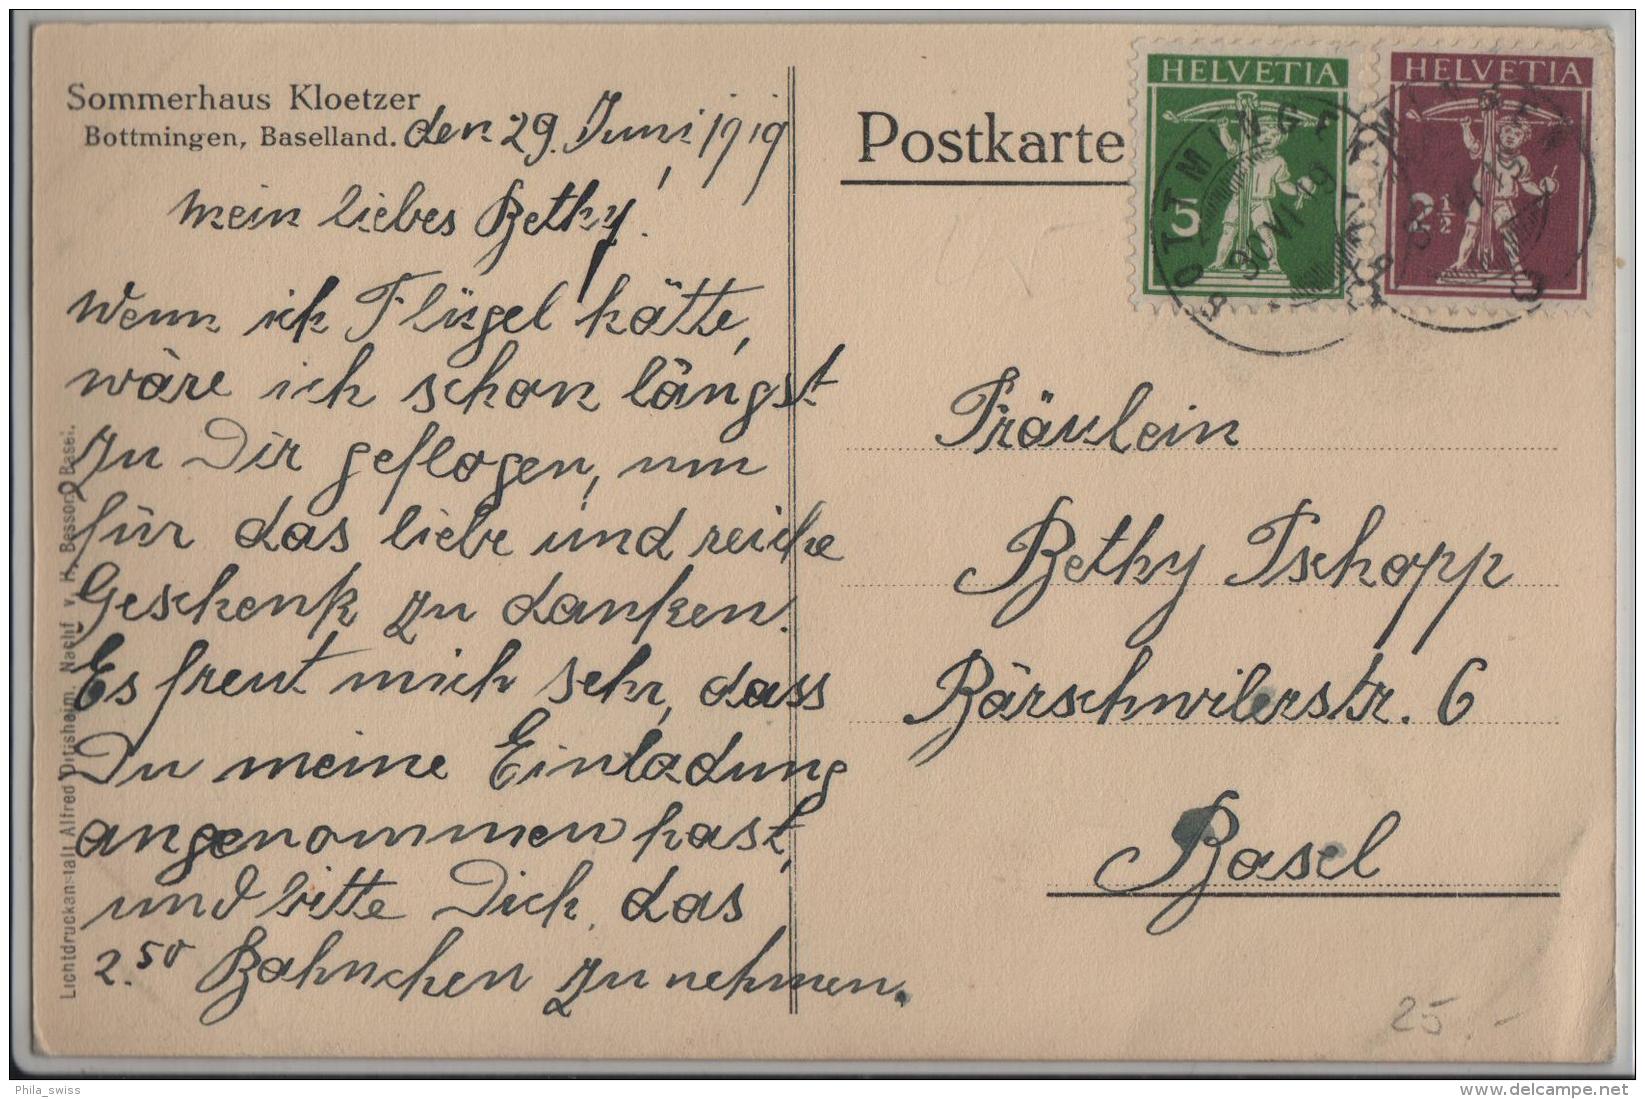 Sommerhaus Kloetzer
Bottmingen, Baselland. den 29. Juni, 1919
Mein liebes Bethy!
Wenn ich Flügel hätte,
wäre ich schon längst
zu Dir geflogen, um
für das liebe und reiche
Geschenk zu danken.
Es freut mich sehr, dass
Du meine Einladung
angenommen hast,
und bitte Dich, das
2.50 Bahnchen zu nehmen.
Lichtdruckanstalt Alfred Ditisheim, Nachf. v. H. Besson, Basel.
Postkarte
HELVETIA
5
HELVETIA
2½
BOTTMINGEN
30.VI.19
Fräulein
Bethy Tschopp
Bärschwilerstr. 6
Basel
25.-
Phila_swiss
delcampe.net